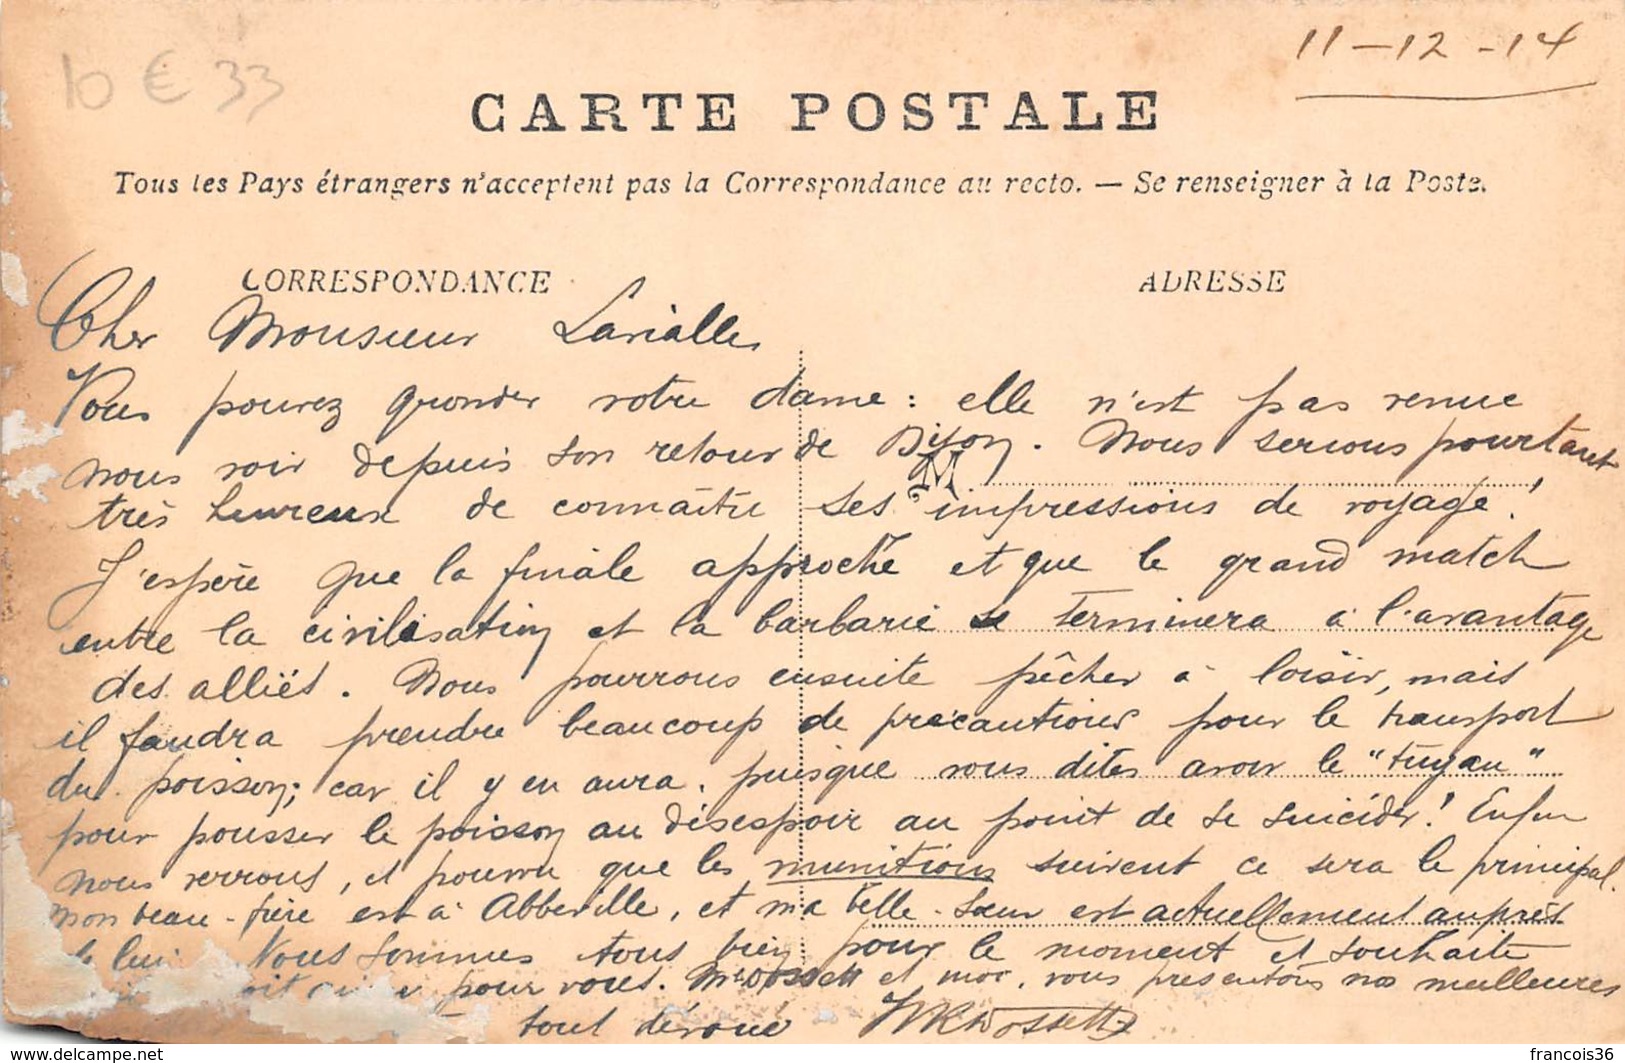 11-12-14
10 € 33
CARTE POSTALE
Tous les Pays étrangers n'acceptent pas la Correspondance au recto. — Se renseigner à la Poste.
CORRESPONDANCE
ADRESSE
Cher Monsieur Larialle
Vous pouvez gronder votre dame : elle n'est pas venue
nous voir depuis son retour de Dijon. Nous serions pourtant
M
très heureux de connaître ses impressions de voyage !
J'espère que la finale approche et que le grand match
entre la civilisation et la barbarie se terminera à l'avantage
des alliés. Nous pourrons ensuite pêcher à loisir, mais
il faudra prendre beaucoup de précautions pour le transport
du poisson; car il y en aura, puisque vous dites avoir le "tuyau"
pour pousser le poisson au désespoir au point de se suicider ! Enfin
nous verrons, et pourvu que les munitions suivent ce sera le principal.
Mon beau-frère est à Abbeville, et ma belle-sœur est actuellement auprès
de lui. Nous sommes tous bien pour le moment et souhaite
pour vous. et moi, vous présentons nos meilleures
tout dévoué
delcampe.net
francois36